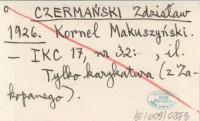 CZERMAŃSKI Zdzisław
1926. Kornel Makuszyński.
– IKC 17, nr 32: – , il.
Tylko karykatura (z Za-
kopanego).